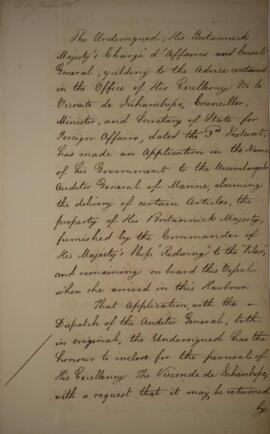 The Undersigned, His Britannick
Majesty's Chargé d'Affaires and Consul
General, yielding to the Advice contained
in the Office of His Excellency M. le
Vicomte de Inhambupe, Councillor,
Minister, and Secretary of State for
Foreign Affairs, dated the 3rd Instant,
has made an Application in the Name
of his Government to the Desembargador
Auditor General of Marine, claiming
the delivery of certain Articles, the
property of His Britannick Majesty,
furnished by the Commander of
His Majesty's Ship "Redwing" to the
and remaining on board this Vessel
when she arrived in this Harbour.
That Application, with the
Dispatch of the Auditor General, both
in original, the Undersigned has the
honour to inclose for the perusal of
His Excellency The Visconde de Inhambupe,
with a request that it may be returned
by